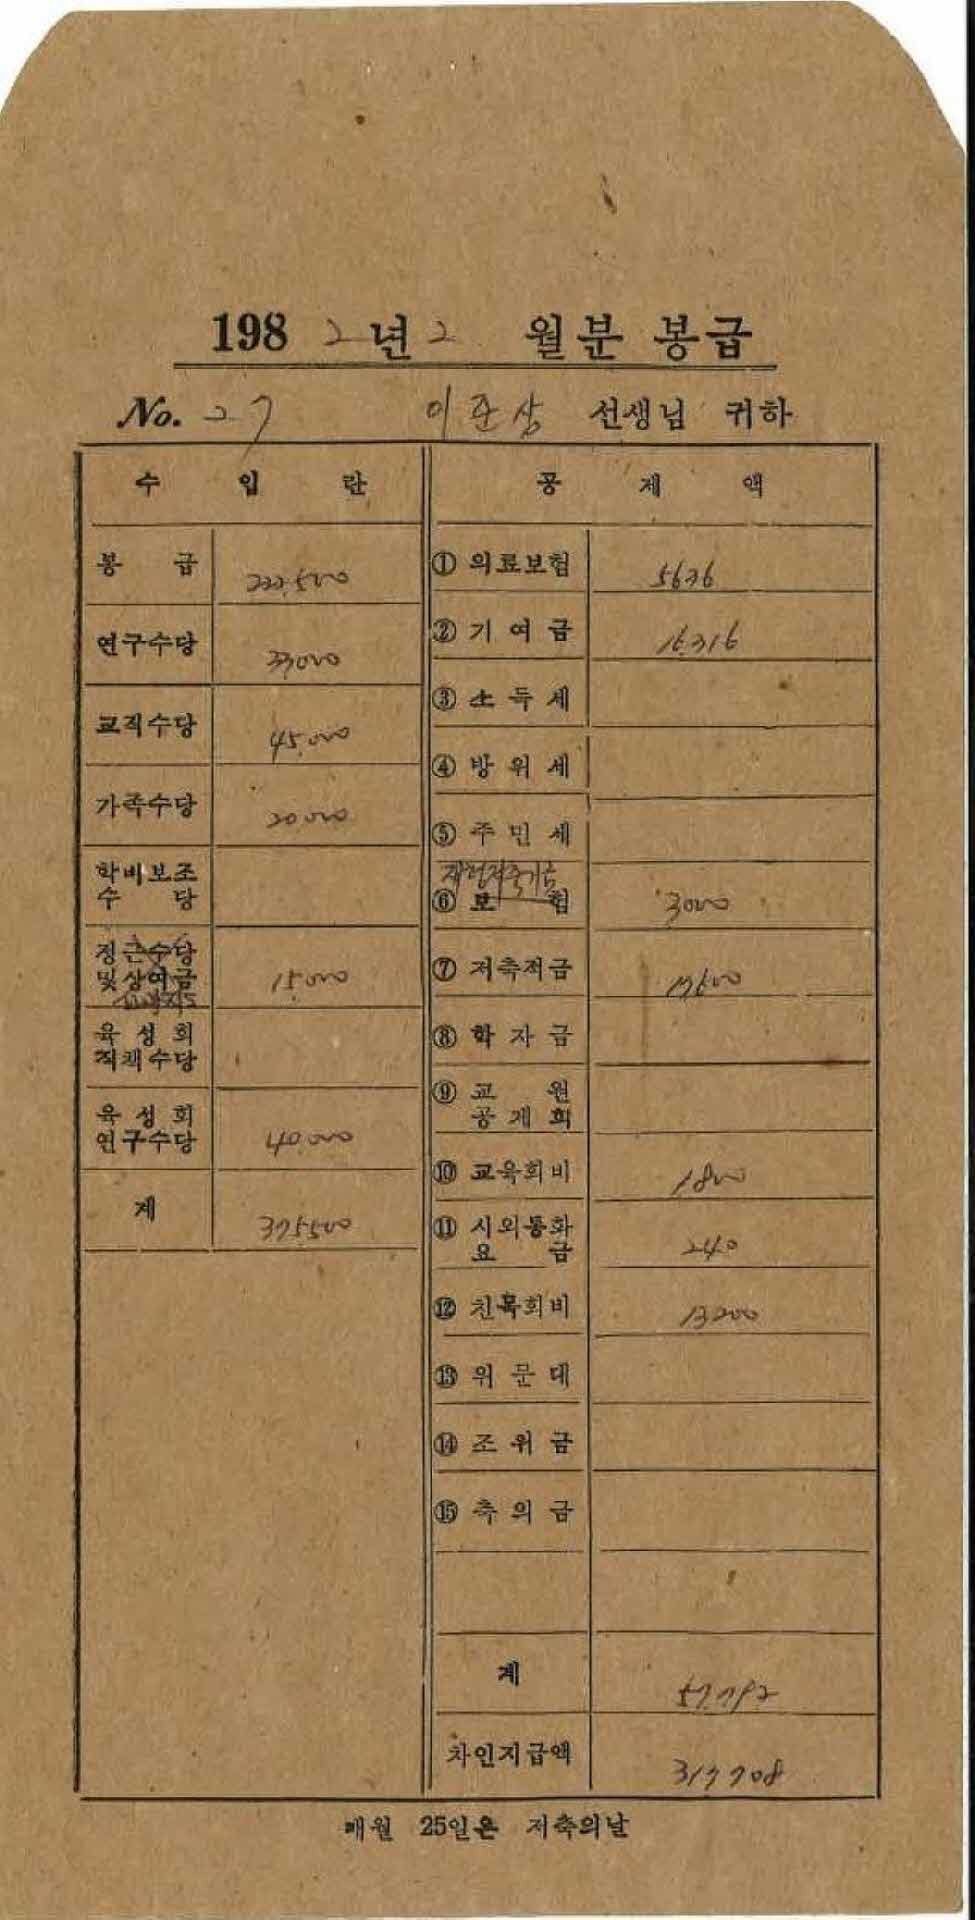 198 2년 2 월분 봉급
No. 27 이준상 선생님 귀하
수 입 란
봉 급 222,500
연구수당 33,000
교직수당 45,000
가족수당 20,000
학비보조
수 당
정근수당
및상여금 15,000
육성회
직책수당
육성회
연구수당 40,000
계 375,500
공 제 액
① 의료보험 5636
② 기여금 16,316
③ 소득세
④ 방위세
⑤ 주민세
⑥ 보 험 3000
⑦ 저축적금 17600
⑧ 학자금
⑨ 교 원
공제회
⑩ 교육회비 1800
⑪ 시외통화
요 금 240
⑫ 친목회비 13200
⑬ 위문대
⑭ 조위금
⑮ 축의금
계 57,792
차인지급액 317,708
매월 25일은 저축의날